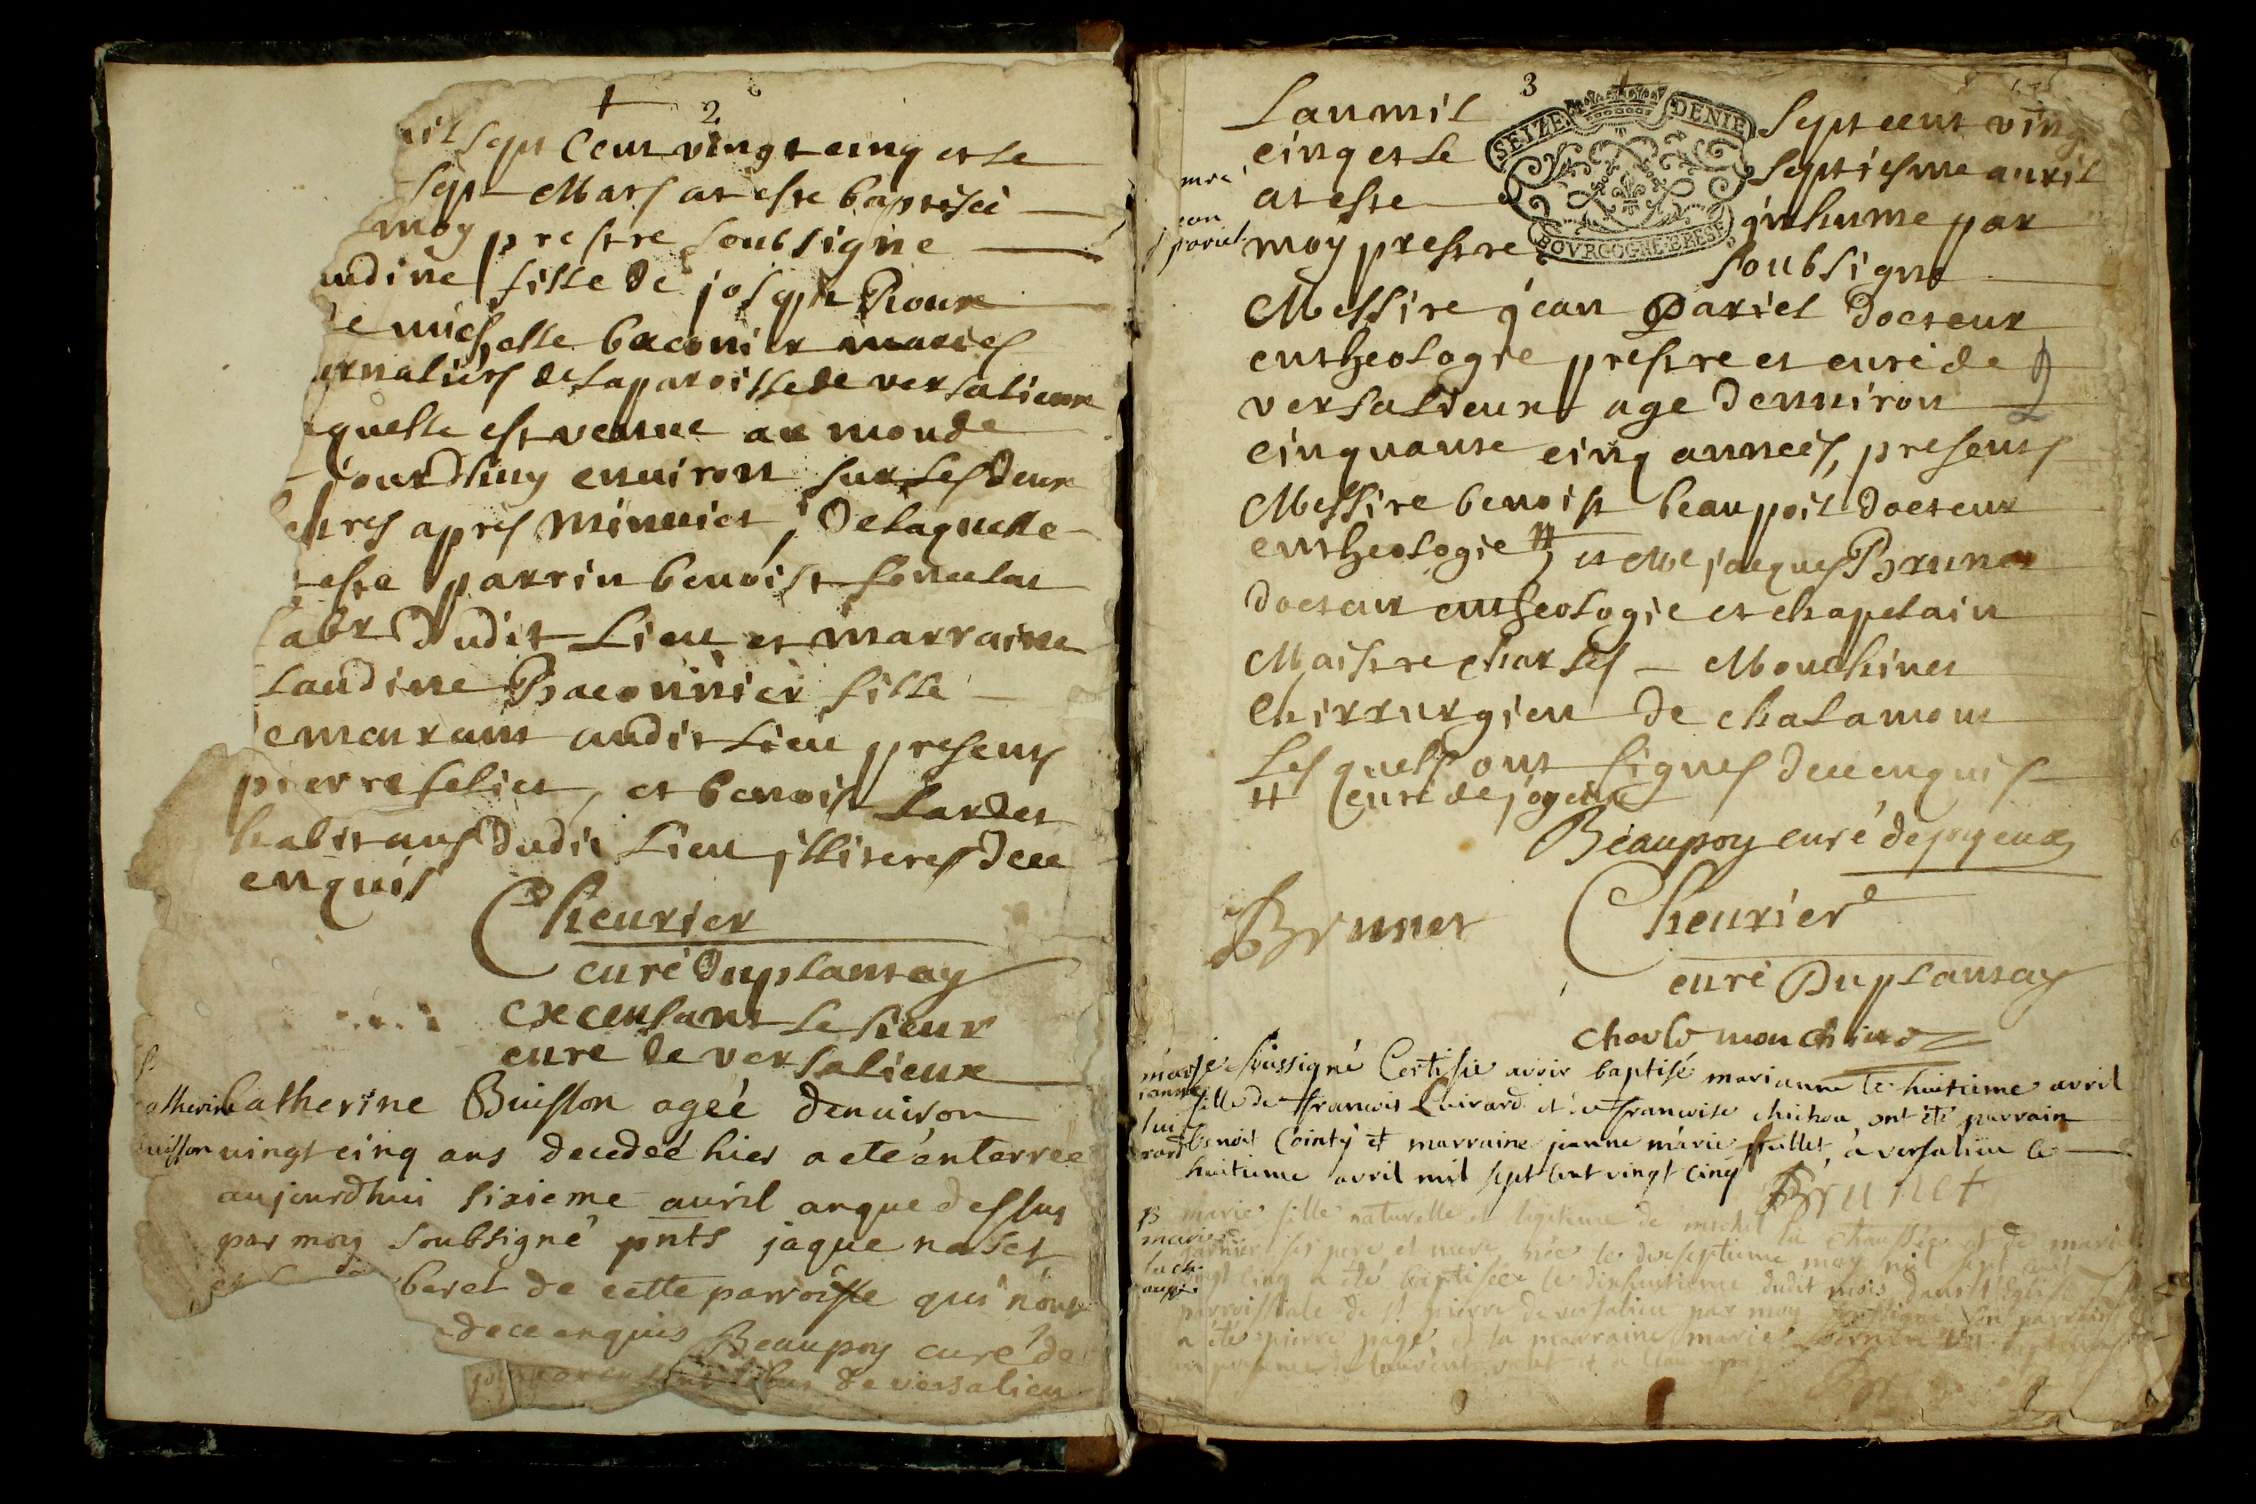 2
sept Cent vingt cinq et le
sept Mars at este baptisée
moy prestre soubsigne
fille de joseph Roux
michelle baconier mariés
de la paroisse de versalieux
est venue au monde
jourdhuy environ sur les deux
apres minuict, de laquelle
este parrin benoist
labr dudit Lieu et marraine
laudine Baconnier fille
demeurant audit Lieu presents
pierre felict, et benoist Lardet
habitans dudit Lieu illiteres dece
enquis
Cheurier
curé Duplantay
excensant le sieur
cure de versalieux
Catherine Buisson
Catherine Buisson ageé denuiron
vingt cinq ans decedeé hier a eté enterreé
aujourdhui sixieme auril anque dessus
par moy soubsigné pnts jaque naset
beret de cette parroisse qui nont
dece enquis Beaupoy curé de
de versalieu
3
Lan mil Sept cent ving
SEIZE DENIE
BOVRGOGNE BRESE
cinq et le Septiesme auril
at este inhume par
moy prestre Soubsigne
Messire jean Pariet docteur
en theologie prestre et curé de
versalieux age denuiron
cinquante cinq années, presents
Messire benoist beaupoil docteur
en theologie # et Mre jacques Brunet
docteur en theologie et chapelain
Maistre charles Mouchinet
Chirrurgien de chalamont
Lesquels ont signes dece enquis
# Curé de joyeux
Beaupoy curé de joyeux
Brunet Cheurier
curé Duplantay
charle mouchinet
Je soussigné Certifie avoir baptisé marianne le huitieme avril
fille de francois Luirard et de francoise chichou ont été parrain
benoit Cointy et marraine jeanne marie fillet, a versalieu le
huitieme avril mil sept cent vingt cinq
Brunet
marie fille naturelle et legitime de michel la chaussée et de marie
garnier ses pere et mere née le dixseptieme may mil sept cent
vingt cinq a été baptisée le dixhuitieme dudit mois dans l'Eglise
parroissiale de st pierre de versalieu par moy soussigné son parrain
a été pierre page, et la marraine marie